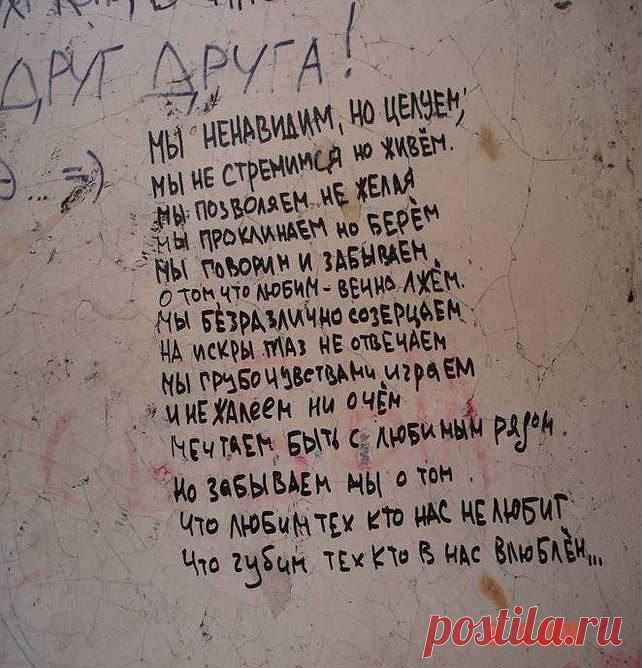 ДРУГ ДРУГА!
... =)
МЫ НЕНАВИДИМ, НО ЦЕЛУЕМ,
МЫ НЕ СТРЕМИМСЯ НО ЖИВЁМ.
МЫ ПОЗВОЛЯЕМ НЕ ЖЕЛАЯ
МЫ ПРОКЛИНАЕМ НО БЕРЁМ
МЫ ГОВОРИМ И ЗАБЫВАЕМ
О ТОМ, ЧТО ЛЮБИМ - ВЕЧНО ЛЖЁМ.
МЫ БЕЗРАЗЛИЧНО СОЗЕРЦАЕМ
НА ИСКРЫ ГЛАЗ НЕ ОТВЕЧАЕМ
МЫ ГРУБО ЧУВСТВАМИ ИГРАЕМ
И НЕ ЖАЛЕЕМ НИ О ЧЁМ
МЕЧТАЕМ БЫТЬ С ЛЮБИМЫМ РЯДОМ.
НО ЗАБЫВАЕМ МЫ О ТОМ.
ЧТО ЛЮБИМ ТЕХ КТО НАС НЕ ЛЮБИТ
ЧТО ГУБИМ ТЕХ КТО В НАС ВЛЮБЛЁН...
postila.ru